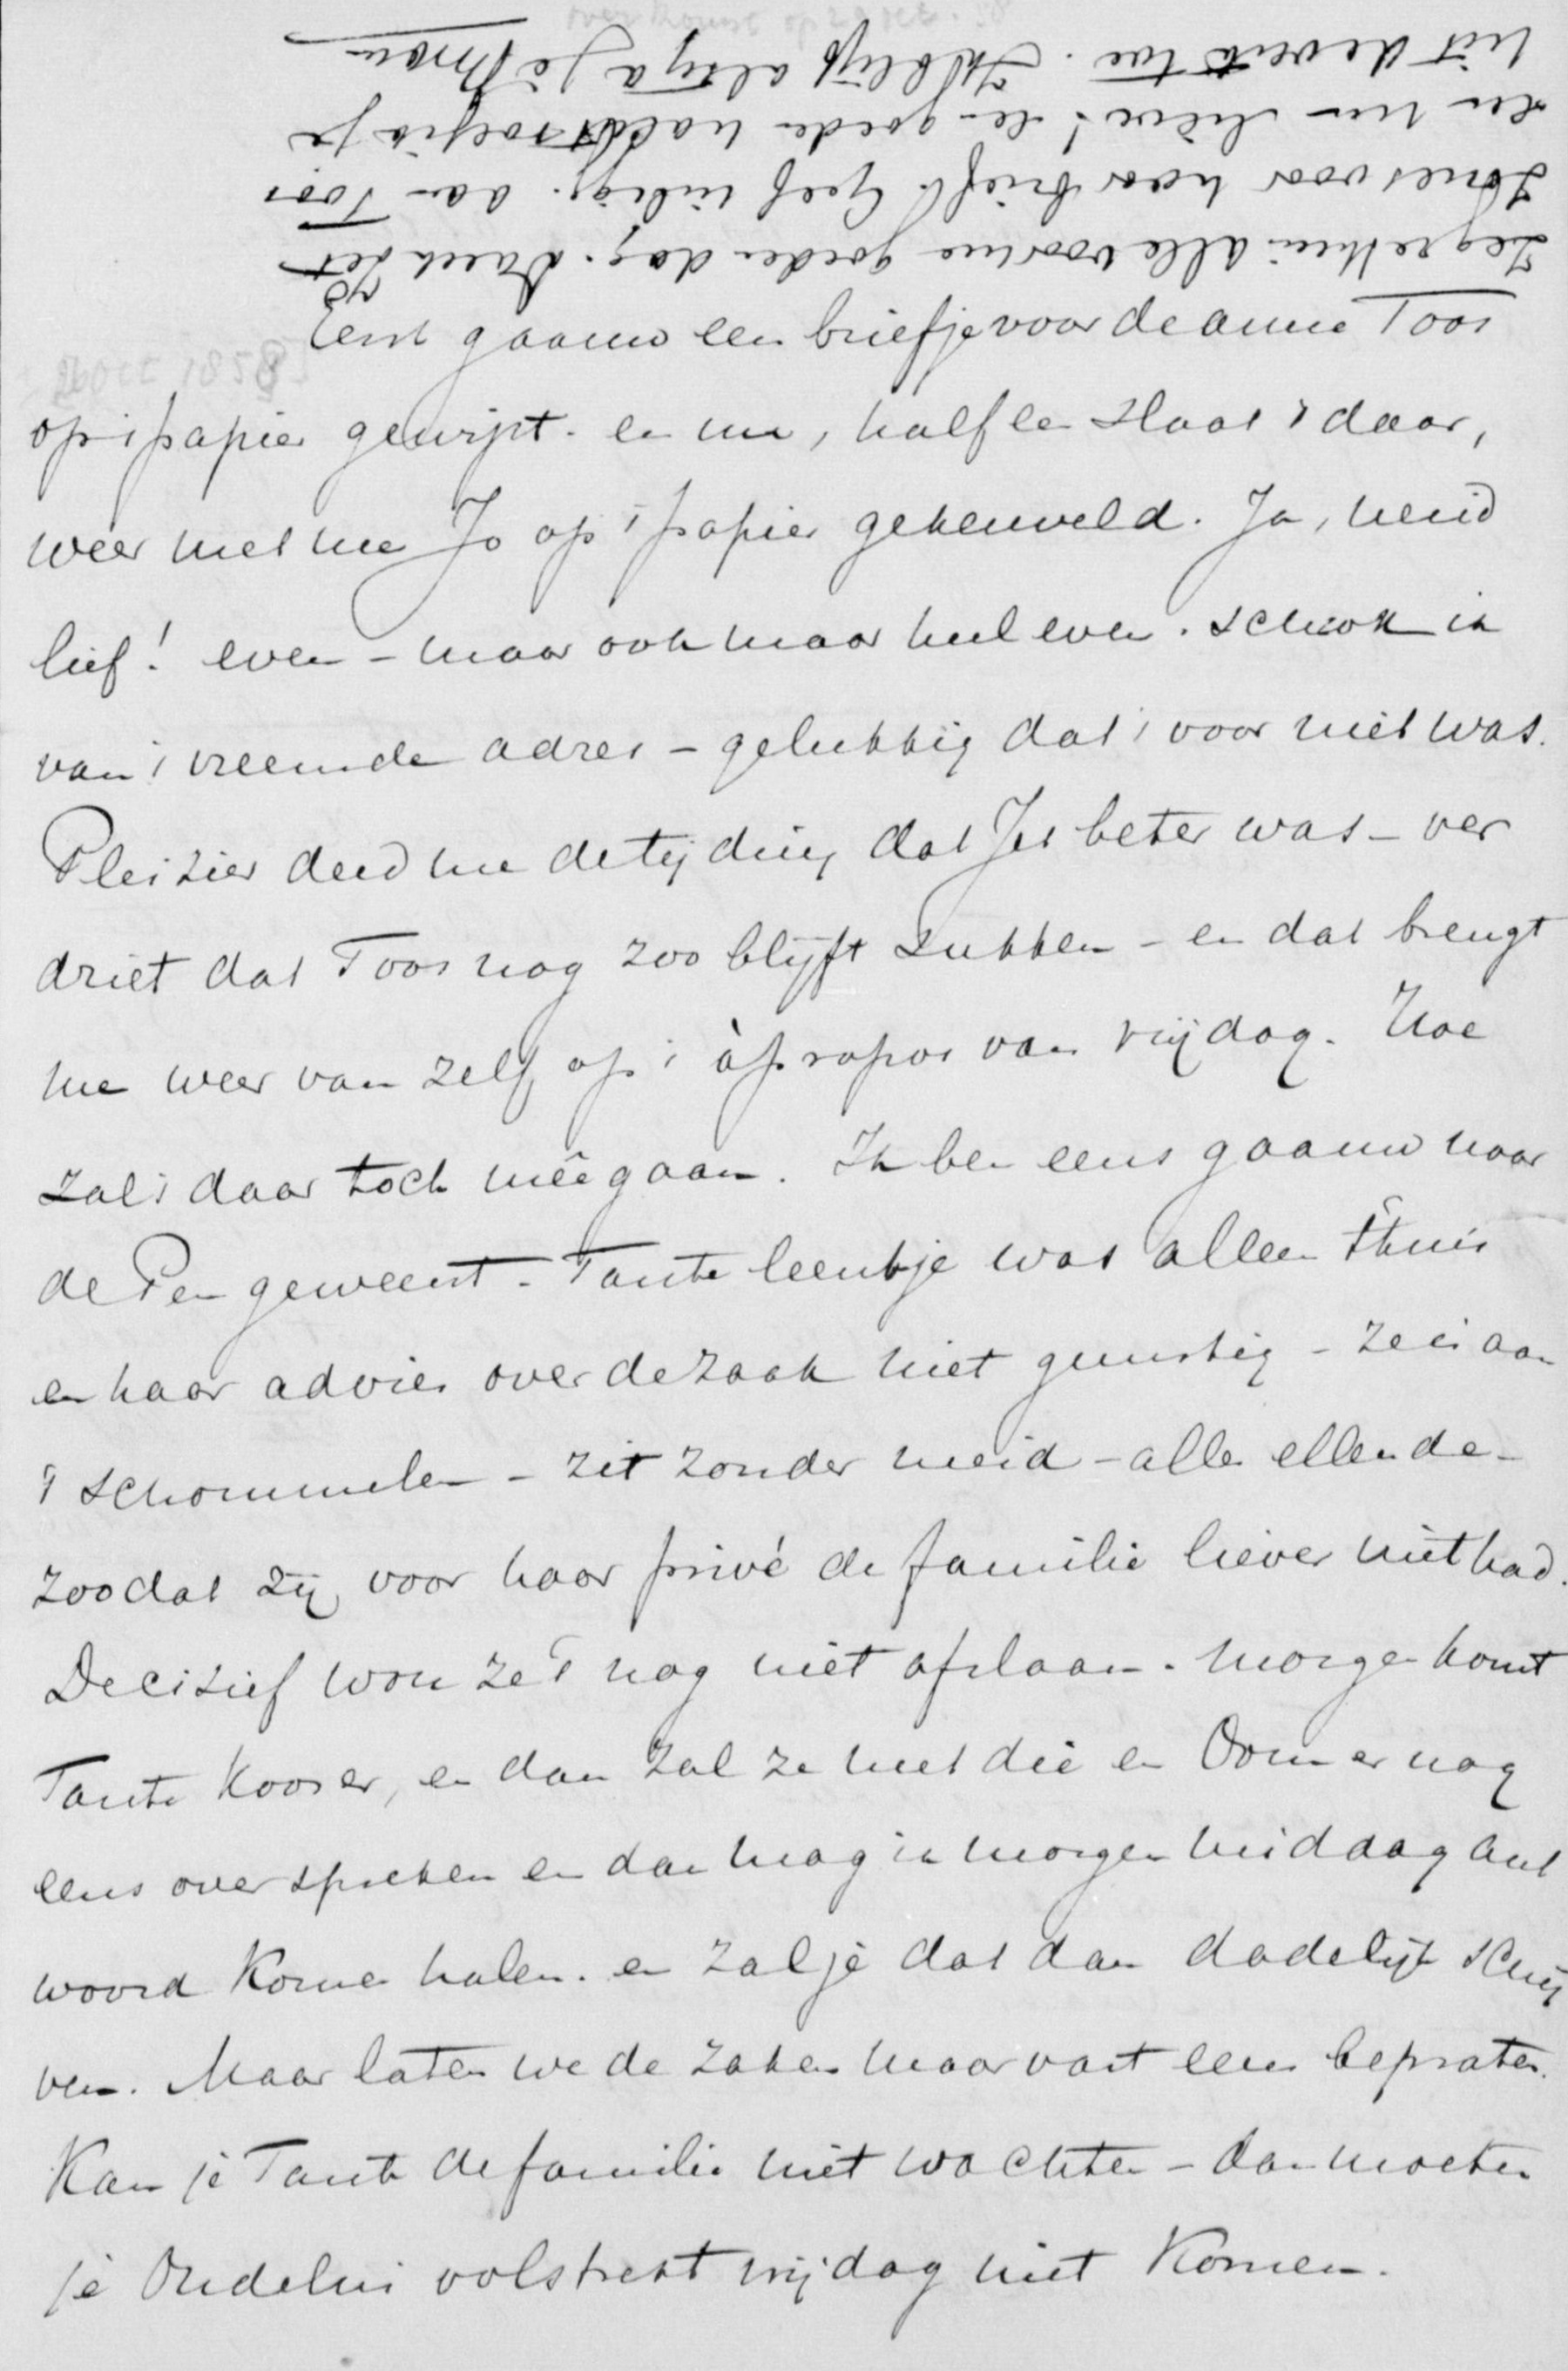 Eerst gaauw een briefje voor de arme Toos
op 't papier gewipt. en nu, half een slaat 't daar,
weer met me Jo op 't papier gekeuveld. Ja, meid
lief! even - maar ook maar heel even. schrok ik
van 't vreemde adres - gelukkig dat 't voor niet was.
Pleizier deed me de tijding dat Jet beter was - ver
driet dat Toos nog zoo blijft sukkelen - en dat brengt
me weer van zelf op 't àpropos van vrijdag. Hoe
zal 't daar toch meêgaan. Ik ben eens gaauw naar
de Pen geweest. Tante Leentje was alleen thuis
en haar advies over de zaak niet gunstig - ze is aan
't schommelen - zit zonder meid - alle ellende -
zoodat zij voor haar privé de familie liever niet had.
Decisief wou ze 't nog niet afslaan. morgen komt
Tante Koos er, en dan zal ze met die en Oom er nog
eens over spreken en dan mag ik morgen middag ant
woord komen halen. en zal je dat dan dadelijk schrij
ven. Maar laten we de zaken maar vast eens bepraten.
Kan je Tante de familie niet wachten - dan moeten
je Oudelui volstrekt vrijdag niet komen.
Zeg ze thuis alle voor me goeden dag. Dank Jet
voor haar briefje. Geef aan Toos
en nu lieve! een goede nacht
toe. Ik blijf altijd je Man
26 Oct 1858